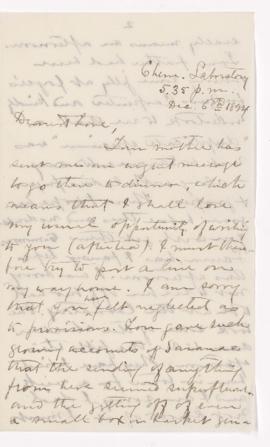 Chem. Laboratory
5.35 p.m.
Dec. 6th 1894
Dearest love,
Your mother has
sent me an urgent message
to go there to dinner, which
means that I shall lose
my usual opportunity of writing
to you (after tea). I must there-
fore try to post a line on
my way home. I am sorry
that you have felt neglected as
to provisions. You gave such
glowing accounts of Saranac
that the sending of anything
from here seemed superfluous
and the getting off of even
a small box in basket